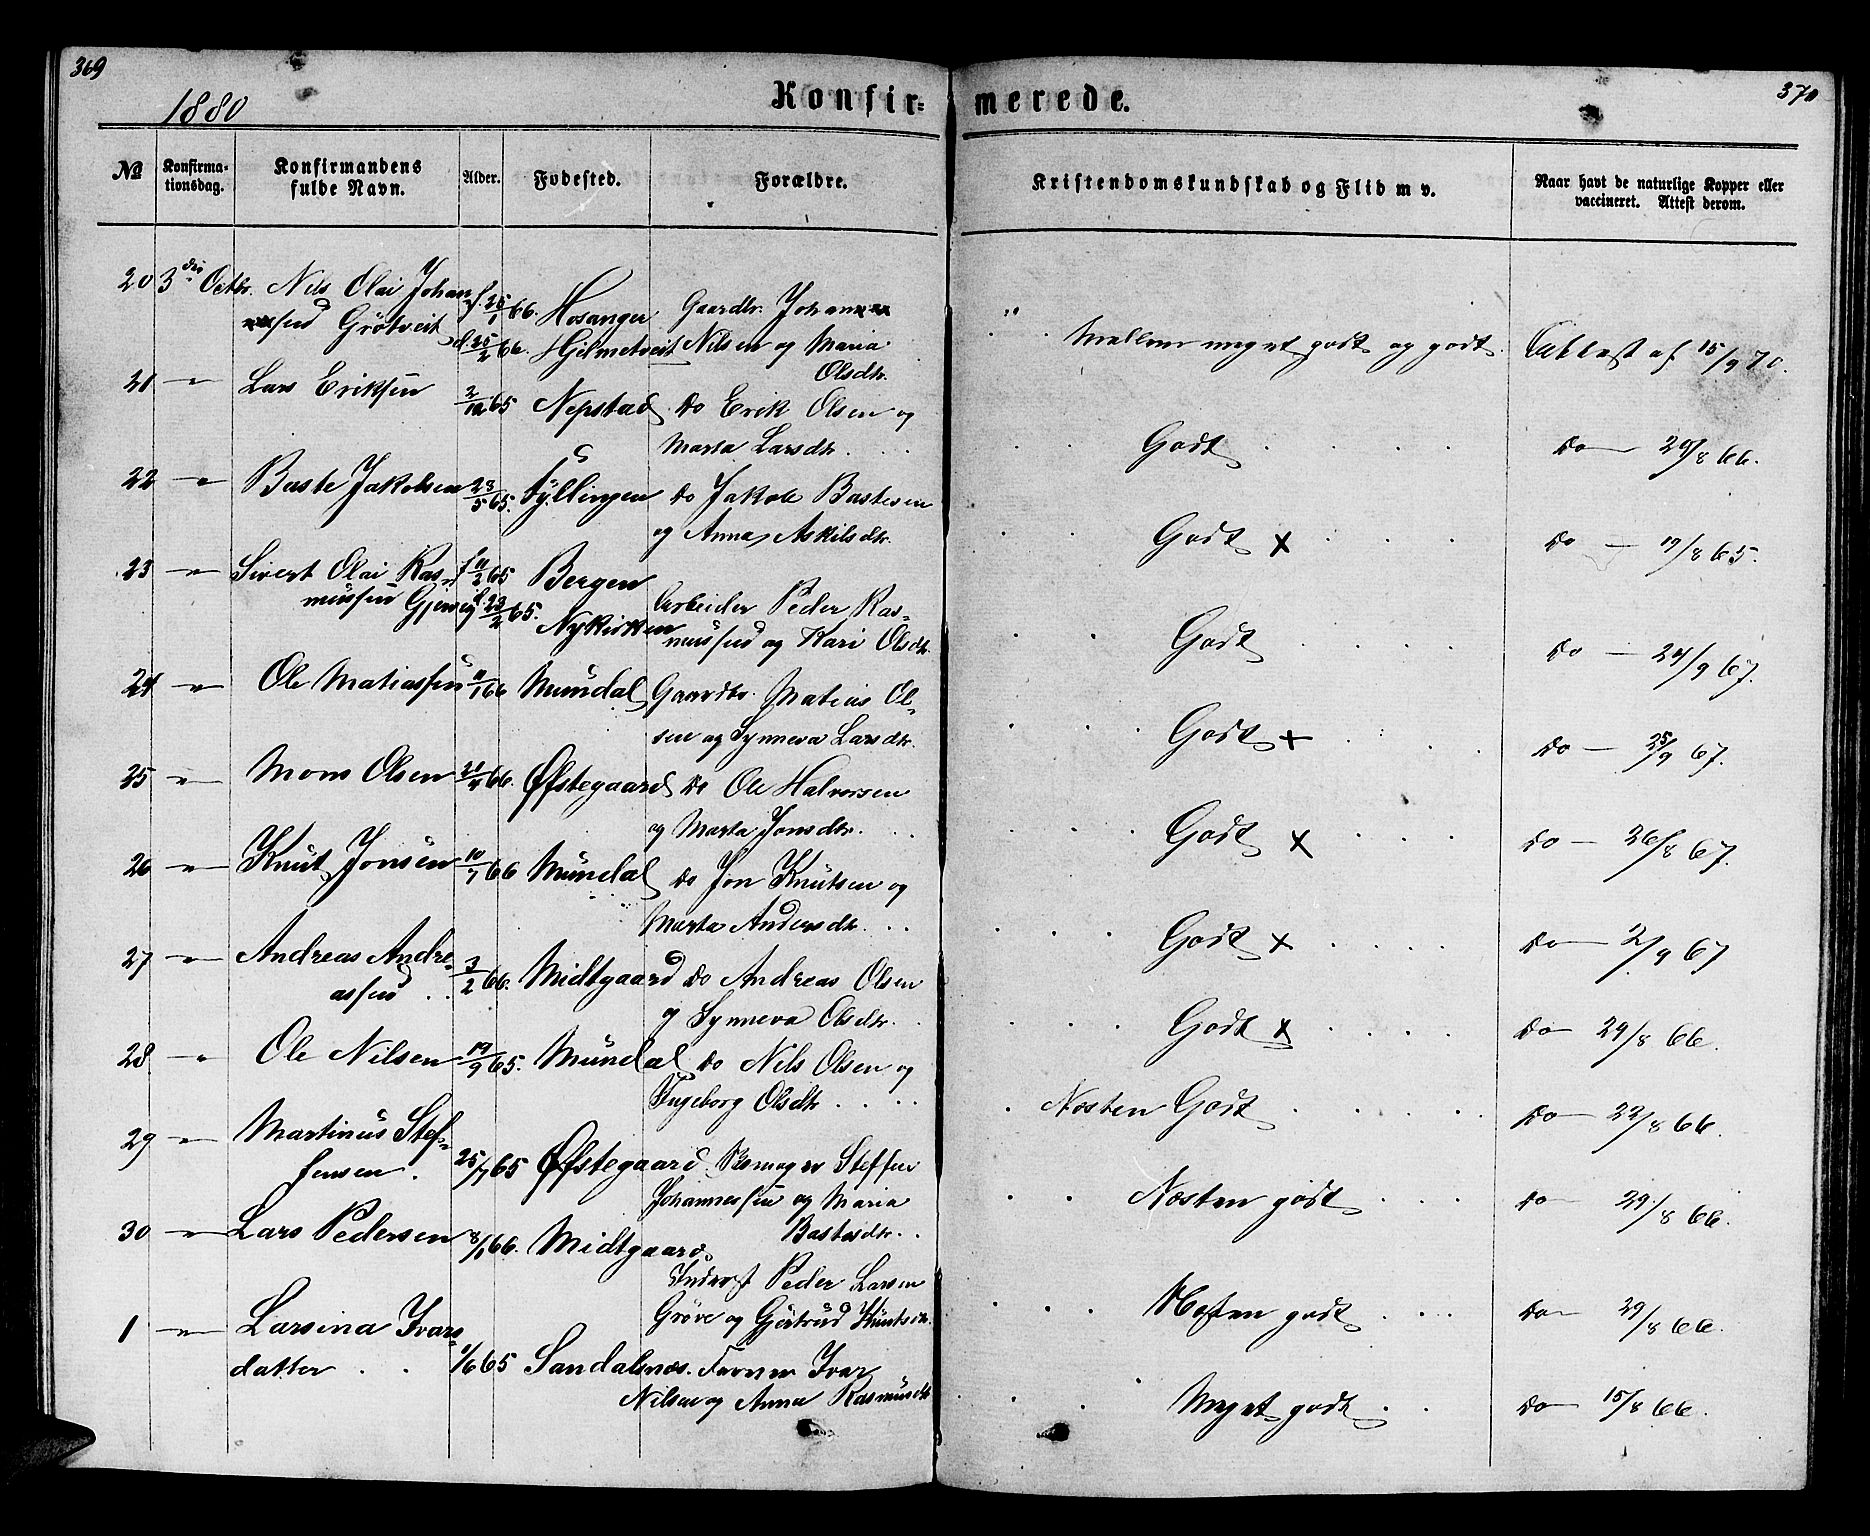 369
370
1880
Konfir=
merede.
№
Konfirma-
tionsdag.
Konfirmandens
fulde Navn.
Alder.
Fødested.
Forældre.
Kristendomskundskab og Flid m v.
Naar havt de naturlige Kopper eller
vaccineret. Attest derom.
20 3die Octbr. Nils Olai Johan- f. 25/1 66. Hosanger Gaardbr. Johan
sen Grøtveit d. 25/2 66. Hjelmetveit Nilsen og Maria
Olsdtr.
Mellem meget godt og godt. Attest af 15/9 70.
21 — " — Lars Eriksen 2/12 65 Nepstad Do Erik Olsen og
Marta Larsdtr.
Godt Do — 29/8 66.
22 — " — Baste Jakobsen 23/5 65. Fyllingen Do Jakob Bastesen
og Anna Askilsdtr.
Godt x Do — 19/8 65.
23 — " — Sivert Olai Ras- f 11/2 65 Bergen
mussen Gjervig d. 23/2 65. Nykirken Arbeider Peder Ras-
mussen og Kari Olsdtr.
Godt Do — 24/9 67.
24 — " — Ole Matiassen 11/1 66 Mundal Gaardbr. Matias Ol-
sen og Synneva Larsdtr.
Godt x Do — 25/9 67.
25 — " — Mons Olsen 21/4 66. Øfstegaard Do Ole Halvorsen
og Marta Jonsdtr.
Godt x Do — 26/8 67.
26 — " — Knut Jonsen 10/7 66 Mundal Do Jon Knutsen og
Marta Andersdtr.
Godt x Do — 2/9 67
27 — " — Andreas Andre-
assen 3/2 66. Midtgaard Do Andreas Olsen
og Synneva Olsdtr.
Godt x Do — 29/8 66.
28 — " Ole Nilsen 19/9 65. Mundal Do Nils Olsen og
Ingeborg Olsdtr
Næsten Godt Do — 22/8 66.
29 — " — Martinus Stef-
fensen 25/7 65 Øfstegaard Steffen
Johannessen og Maria
Bastesdtr.
Næsten godt Do — 29/8 66.
30 — " — Lars Pedersen 8/1 66. Midtgaard
Inderst Peder Larsen
Grøve og Gjertrud Knutsdtr.
Næsten godt Do — 29/8 66.
1 — " — Larsina Ivars-
datter 1/6 65 Sandalsnæs. Ivar
Nilsen og Anna Rasmusdtr
Meget godt Do — 15/8 66.